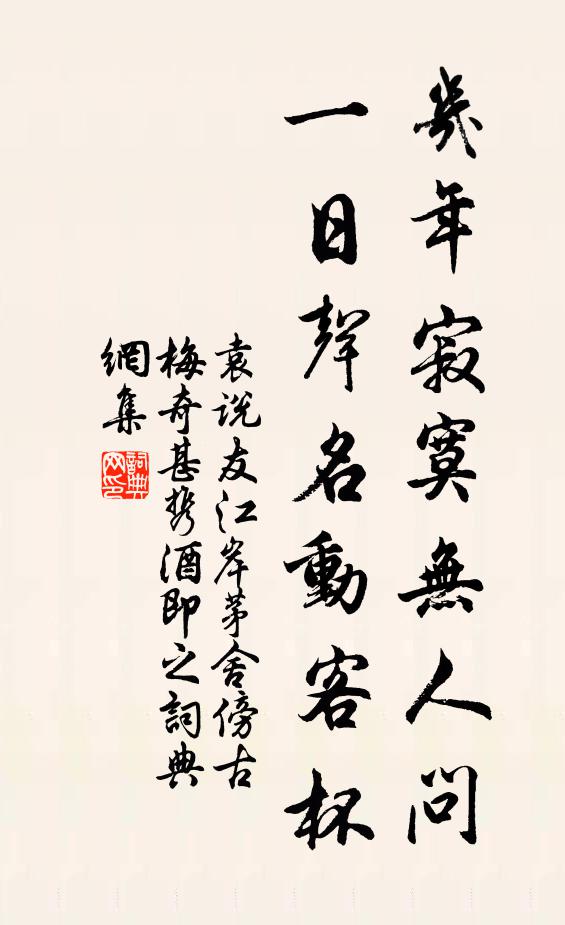 幾年寂寞無人問
一日聲名動客杯
袁說友江岸茅舍傍古
梅奇甚携酒即之詞典
網集
詞典
網印